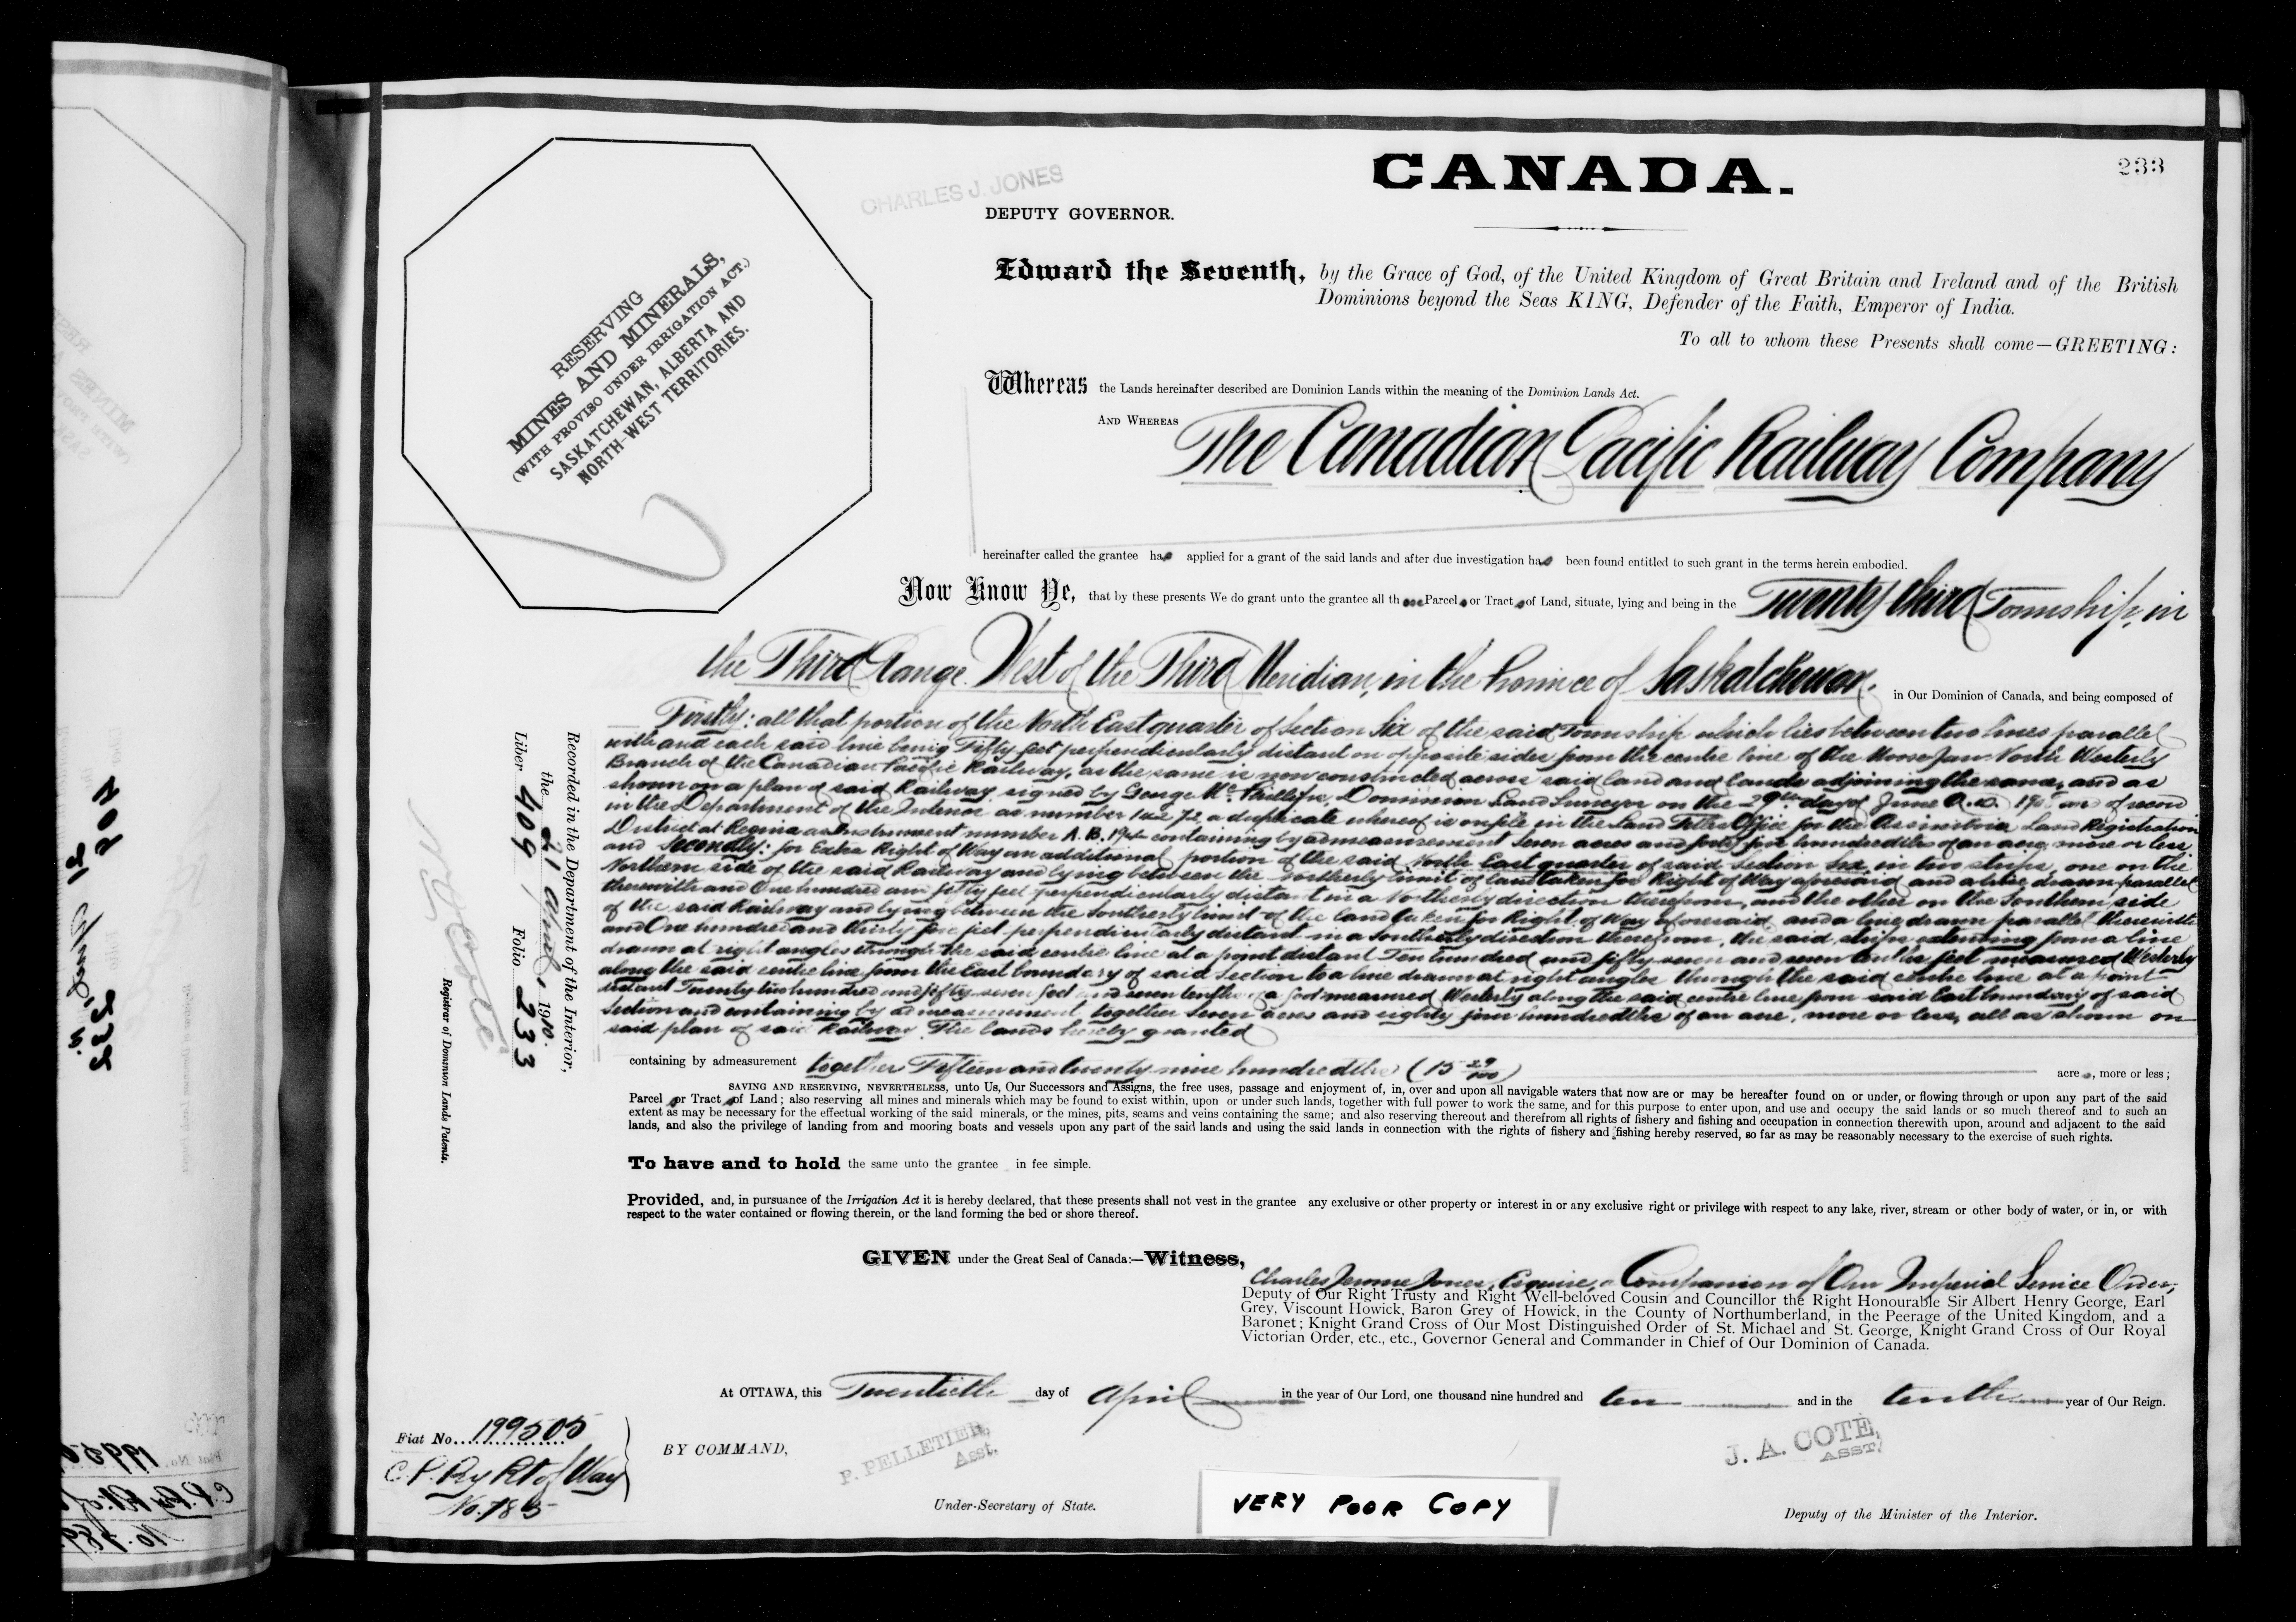 233
CANADA.
CHARLES J. JONES
DEPUTY GOVERNOR.
RESERVING
MINES AND MINERALS,
(WITH PROVISO UNDER IRRIGATION ACT.)
SASKATCHEWAN, ALBERTA AND
NORTH-WEST TERRITORIES.
Edward the Seventh, by the Grace of God, of the United Kingdom of Great Britain and Ireland and of the British
Dominions beyond the Seas KING, Defender of the Faith, Emperor of India.
To all to whom these Presents shall come—GREETING:
Whereas the Lands hereinafter described are Dominion Lands within the meaning of the Dominion Lands Act.
AND WHEREAS The Canadian Pacific Railway Company
hereinafter called the grantee has applied for a grant of the said lands and after due investigation has been found entitled to such grant in the terms herein embodied.
Now Know Ye, that by these presents We do grant unto the grantee all those Parcels or Tracts of Land, situate, lying and being in the Twenty third Township, in
the Third Range West of the Third Meridian, in the Province of Saskatchewan. in Our Dominion of Canada, and being composed of
Firstly: all that portion of the North East quarter of Section Six of the said Township which lies between two lines parallel
with and each said line being Fifty feet perpendicularly distant on opposite sides from the centre line of the Moose Jaw North Westerly
Branch of the Canadian Pacific Railway, as the same is now constructed across said land and lands adjoining the same, and as
shown on a plan of said Railway signed by George Mc. Phillips, Dominion Land Surveyor on the 29th day of June A.D. and of record
in the Department of the Interior as number a duplicate whereof is on file in the Land Titles Office for the Assiniboia Land Registration
District at Regina as Instrument number A.B. containing by admeasurement Seven acres and forty five hundredths of an acre, more or less,
and Secondly: for Extra Right of Way an additional portion of the said North East quarter of said Section Six, in two strips, one on the
Northern side of the said Railway and lying between the Northerly limit of land taken for Right of Way aforesaid and a line drawn parallel
therewith and One hundred and fifty feet perpendicularly distant in a Northerly direction therefrom, and the other on the Southern side
of the said Railway and lying between the Southerly limit of the land taken for Right of Way aforesaid, and a line drawn parallel therewith
and One hundred and thirty five feet perpendicularly distant in a Southerly direction therefrom, the said strips extending from a line
drawn at right angles through the said centre line at a point distant Ten hundred and fifty seven and seven tenths feet measured Westerly
along the said centre line from the East boundary of said Section to a line drawn at right angles through the said centre line at a point
distant Twenty two hundred and fifty seven feet and seven tenths of a foot measured Westerly along the said centre line from said East boundary of said
Section and containing by admeasurement together Seven acres and eighty four hundredths of an acre, more or less, all as shown on
said plan of said Railway. The lands hereby granted
containing by admeasurement together Fifteen and twenty nine hundredths (15 29/100) acres, more or less;
SAVING AND RESERVING, NEVERTHELESS, unto Us, Our Successors and Assigns, the free uses, passage and enjoyment of, in, over and upon all navigable waters that now are or may be hereafter found on or under, or flowing through or upon any part of the said
Parcels or Tracts of Land; also reserving all mines and minerals which may be found to exist within, upon or under such lands, together with full power to work the same, and for this purpose to enter upon, and use and occupy the said lands or so much thereof and to such an
extent as may be necessary for the effectual working of the said minerals, or the mines, pits, seams and veins containing the same; and also reserving thereout and therefrom all rights of fishery and fishing and occupation in connection therewith upon, around and adjacent to the said
lands, and also the privilege of landing from and mooring boats and vessels upon any part of the said lands and using the said lands in connection with the rights of fishery and fishing hereby reserved, so far as may be reasonably necessary to the exercise of such rights.
To have and to hold the same unto the grantee in fee simple.
Provided, and, in pursuance of the Irrigation Act it is hereby declared, that these presents shall not vest in the grantee any exclusive or other property or interest in or any exclusive right or privilege with respect to any lake, river, stream or other body of water, or in, or with
respect to the water contained or flowing therein, or the land forming the bed or shore thereof.
GIVEN under the Great Seal of Canada:—Witness,
Charles Jerome Jones, Esquire, a Companion of Our Imperial Service Order,
Deputy of Our Right Trusty and Right Well-beloved Cousin and Councillor the Right Honourable Sir Albert Henry George, Earl
Grey, Viscount Howick, Baron Grey of Howick, in the County of Northumberland, in the Peerage of the United Kingdom, and a
Baronet; Knight Grand Cross of Our Most Distinguished Order of St. Michael and St. George, Knight Grand Cross of Our Royal
Victorian Order, etc., etc., Governor General and Commander in Chief of Our Dominion of Canada.
At OTTAWA, this Twentieth day of April in the year of Our Lord, one thousand nine hundred and ten and in the tenth year of Our Reign.
BY COMMAND,
P. PELLETIER,
Asst.
Under-Secretary of State.
J. A. COTÉ,
ASST.
Deputy of the Minister of the Interior.
VERY POOR COPY
Fiat No. 199505
C.P. Ry Rt of Way
No. 785
Recorded in the Department of the Interior,
the 21 April 1910.
Liber 409 Folio 233
N. O. Coté
Registrar of Dominion Lands Patents.
409
232